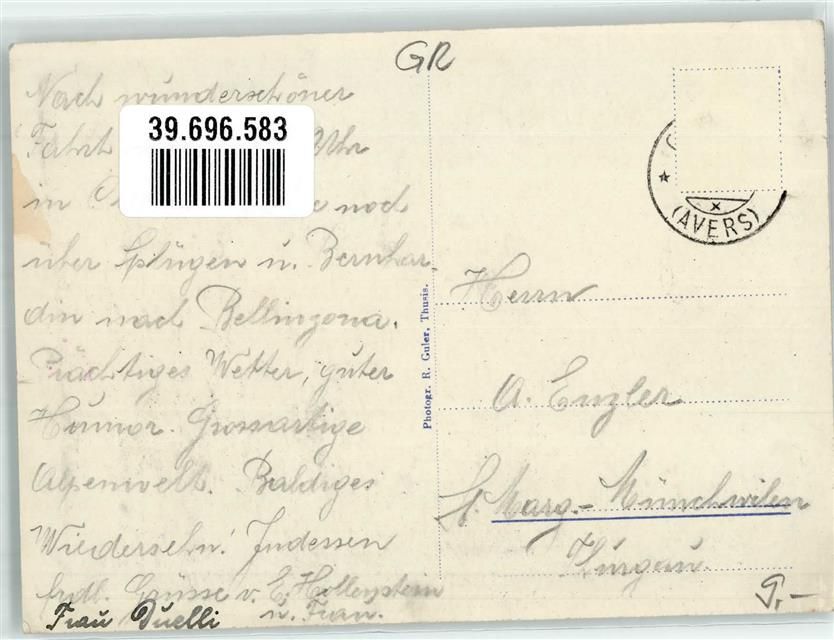 GR
Nach wunderschöner
Fahrt Uhr
in noch
über Splügen u. Bernhar-
din nach Bellinzona.
Prächtiges Wetter, guter
Humor. Grossartige
Alpenwelt. Baldiges
Wiedersehn! Indessen
frdl. Grüsse v. E. Hollenstein
u. Frau.
Frau Duelli
39.696.583
Photogr. R. Guler, Thusis.
(AVERS)
Herrn
A. Enzler
St. Marg.-Münchwilen
Thurgau.
9.-